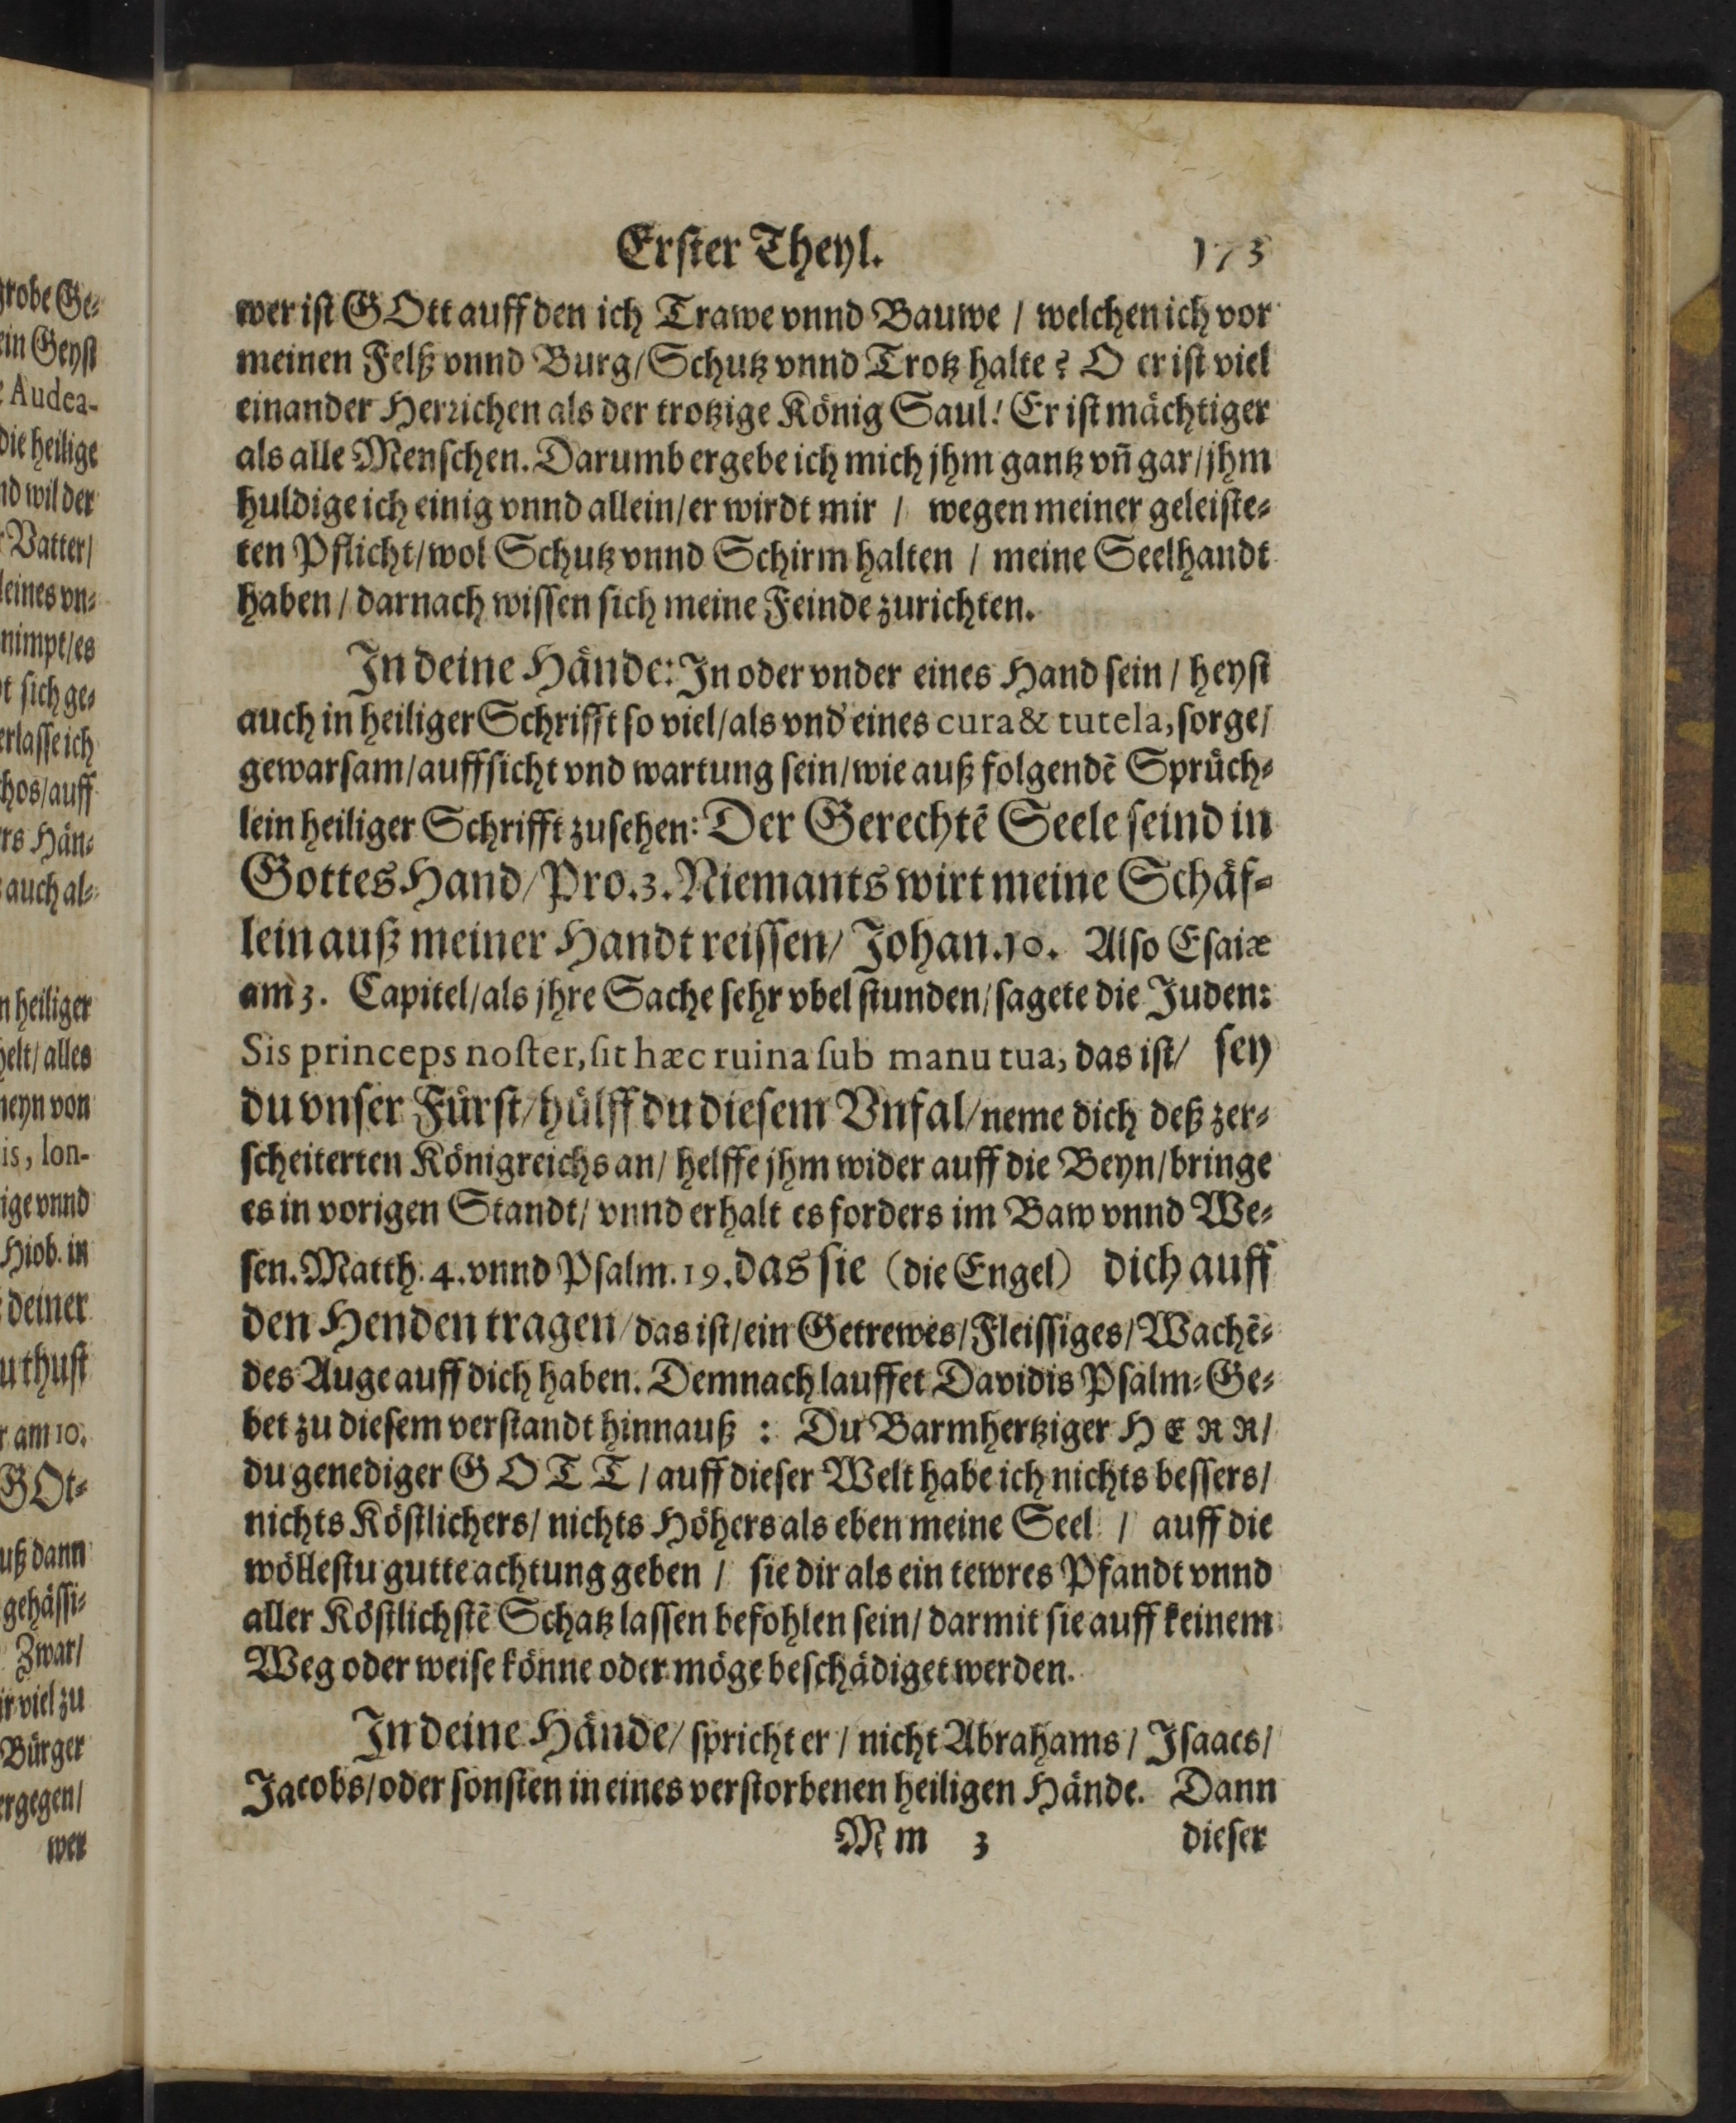 Erster Theyl. 173
wer ist GOtt auff den ich Trawe vnnd Bauwe / welchen ich vor
meinen Felß vnnd Burg/Schutz vnnd Trotz halte? O er ist viel
einander Herrichen als der trotzige König Saul! Er ist mächtiger
als alle Menschen. Darumb ergebe ich mich jhm gantz vñ gar/jhm
huldige ich einig vnnd allein/er wirdt mir / wegen meiner geleiste-
ten Pflicht/wol Schutz vnnd Schirm halten / meine Seelhandt
haben / darnach wissen sich meine Feinde zurichten.
In deine Hände: In oder vnder eines Hand sein / heyst
auch in heiliger Schrifft so viel/als vnd' eines cura & tutela, sorge/
gewarsam/auffsicht vnd wartung sein/wie auß folgendē Sprüch-
lein heiliger Schrifft zusehen: Der Gerechtē Seele seind in
Gottes Hand/Pro.3. Niemants wirt meine Schäf-
lein auß meiner Handt reissen/ Johan.10. Also Esaiæ
am 3. Capitel/als jhre Sache sehr vbel stunden/sagete die Juden:
Sis princeps noster, sit hæc ruina sub manu tua, das ist/ sey
du vnser Fürst/hülff du diesem Vnfal/neme dich deß zer-
scheiterten Königreichs an/ helffe jhm wider auff die Beyn/bringe
es in vorigen Standt/ vnnd erhalt es forders im Baw vnnd We-
sen. Matth. 4. vnnd Psalm. 19. das sie (die Engel) dich auff
den Henden tragen/das ist/ein Getrewes/Fleissiges/Wachē-
des Auge auff dich haben. Demnach lauffet Davidis Psalm-Ge-
bet zu diesem verstandt hinnauß : Du Barmhertziger HERR/
du genediger GOTT/ auff dieser Welt habe ich nichts bessers/
nichts Köstlichers/ nichts Höhers als eben meine Seel / auff die
wöllestu gutte achtung geben / sie dir als ein tewres Pfandt vnnd
aller Köstlichstē Schatz lassen befohlen sein/ darmit sie auff keinem
Weg oder weise könne oder möge beschädiget werden.
In deine Hände/ spricht er / nicht Abrahams / Isaacs/
Jacobs/oder sonsten in eines verstorbenen heiligen Hände. Dann
Mm 3 dieser
grobe Ge-
ein Geyst
Audea-
die heilige
nd wil der
Vatter/
leines vn-
nimpt/es
t sich ge-
erlasse ich
hos/auff
rs Hän-
auch al-
n heiliger
helt/ alles
neyn von
is, lon-
ige vnnd
Hiob. in
deiner
u thust
r am 10.
GOt-
uß dann
gehässi-
Zwar/
ir viel zu
Bürger
ergegen/
wer